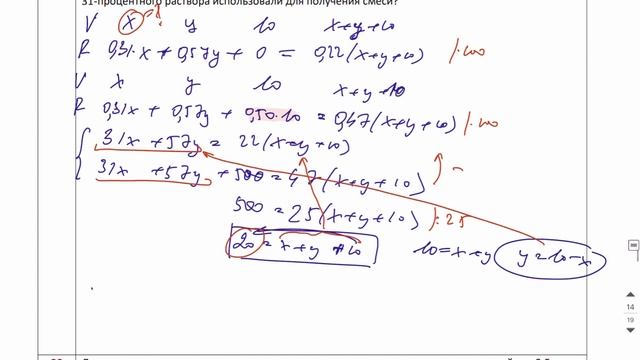 31-процентного раствора использовали для получения смеси?
V x y 10 x+y+10
R 0,31·x + 0,57y + 0 = 0,22(x+y+10) |·100
V x y 10 x+y+10
R 0,31x + 0,57y + 0,50·10 = 0,47(x+y+10) |·100
31x+57y = 22(x+y+10)
31x +57y + 500 = 47(x+y+10) -
500 = 25(x+y+10) |:25
20 = x+y+10 10=x+y y=10-x
14
19